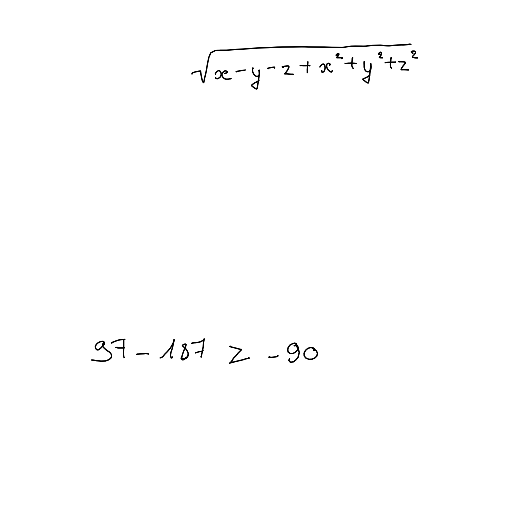 √(x-y-z+x²+y²+z²)
97-187 ≥ -90